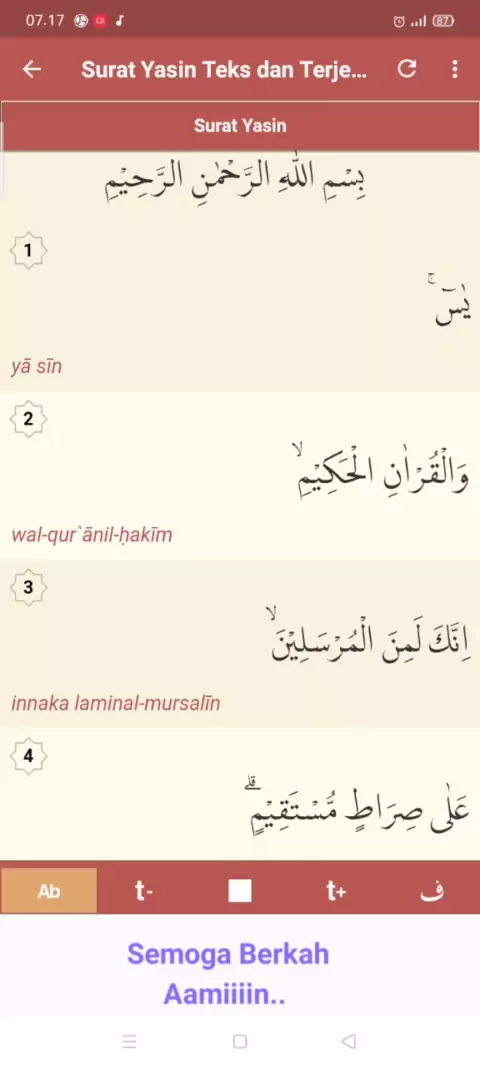 07.17
87
Surat Yasin Teks dan Terje...
Surat Yasin
بِسْمِ اللّٰهِ الرَّحْمٰنِ الرَّحِيْمِ
1
يٰسۤ ۚ
yā sīn
2
وَالْقُرْاٰنِ الْحَكِيْمِۙ
wal-qur`ānil-ḥakīm
3
اِنَّكَ لَمِنَ الْمُرْسَلِيْنَۙ
innaka laminal-mursalīn
4
عَلٰى صِرَاطٍ مُّسْتَقِيْمٍۗ
Ab t- t+ ف
Semoga Berkah
Aamiiiin..